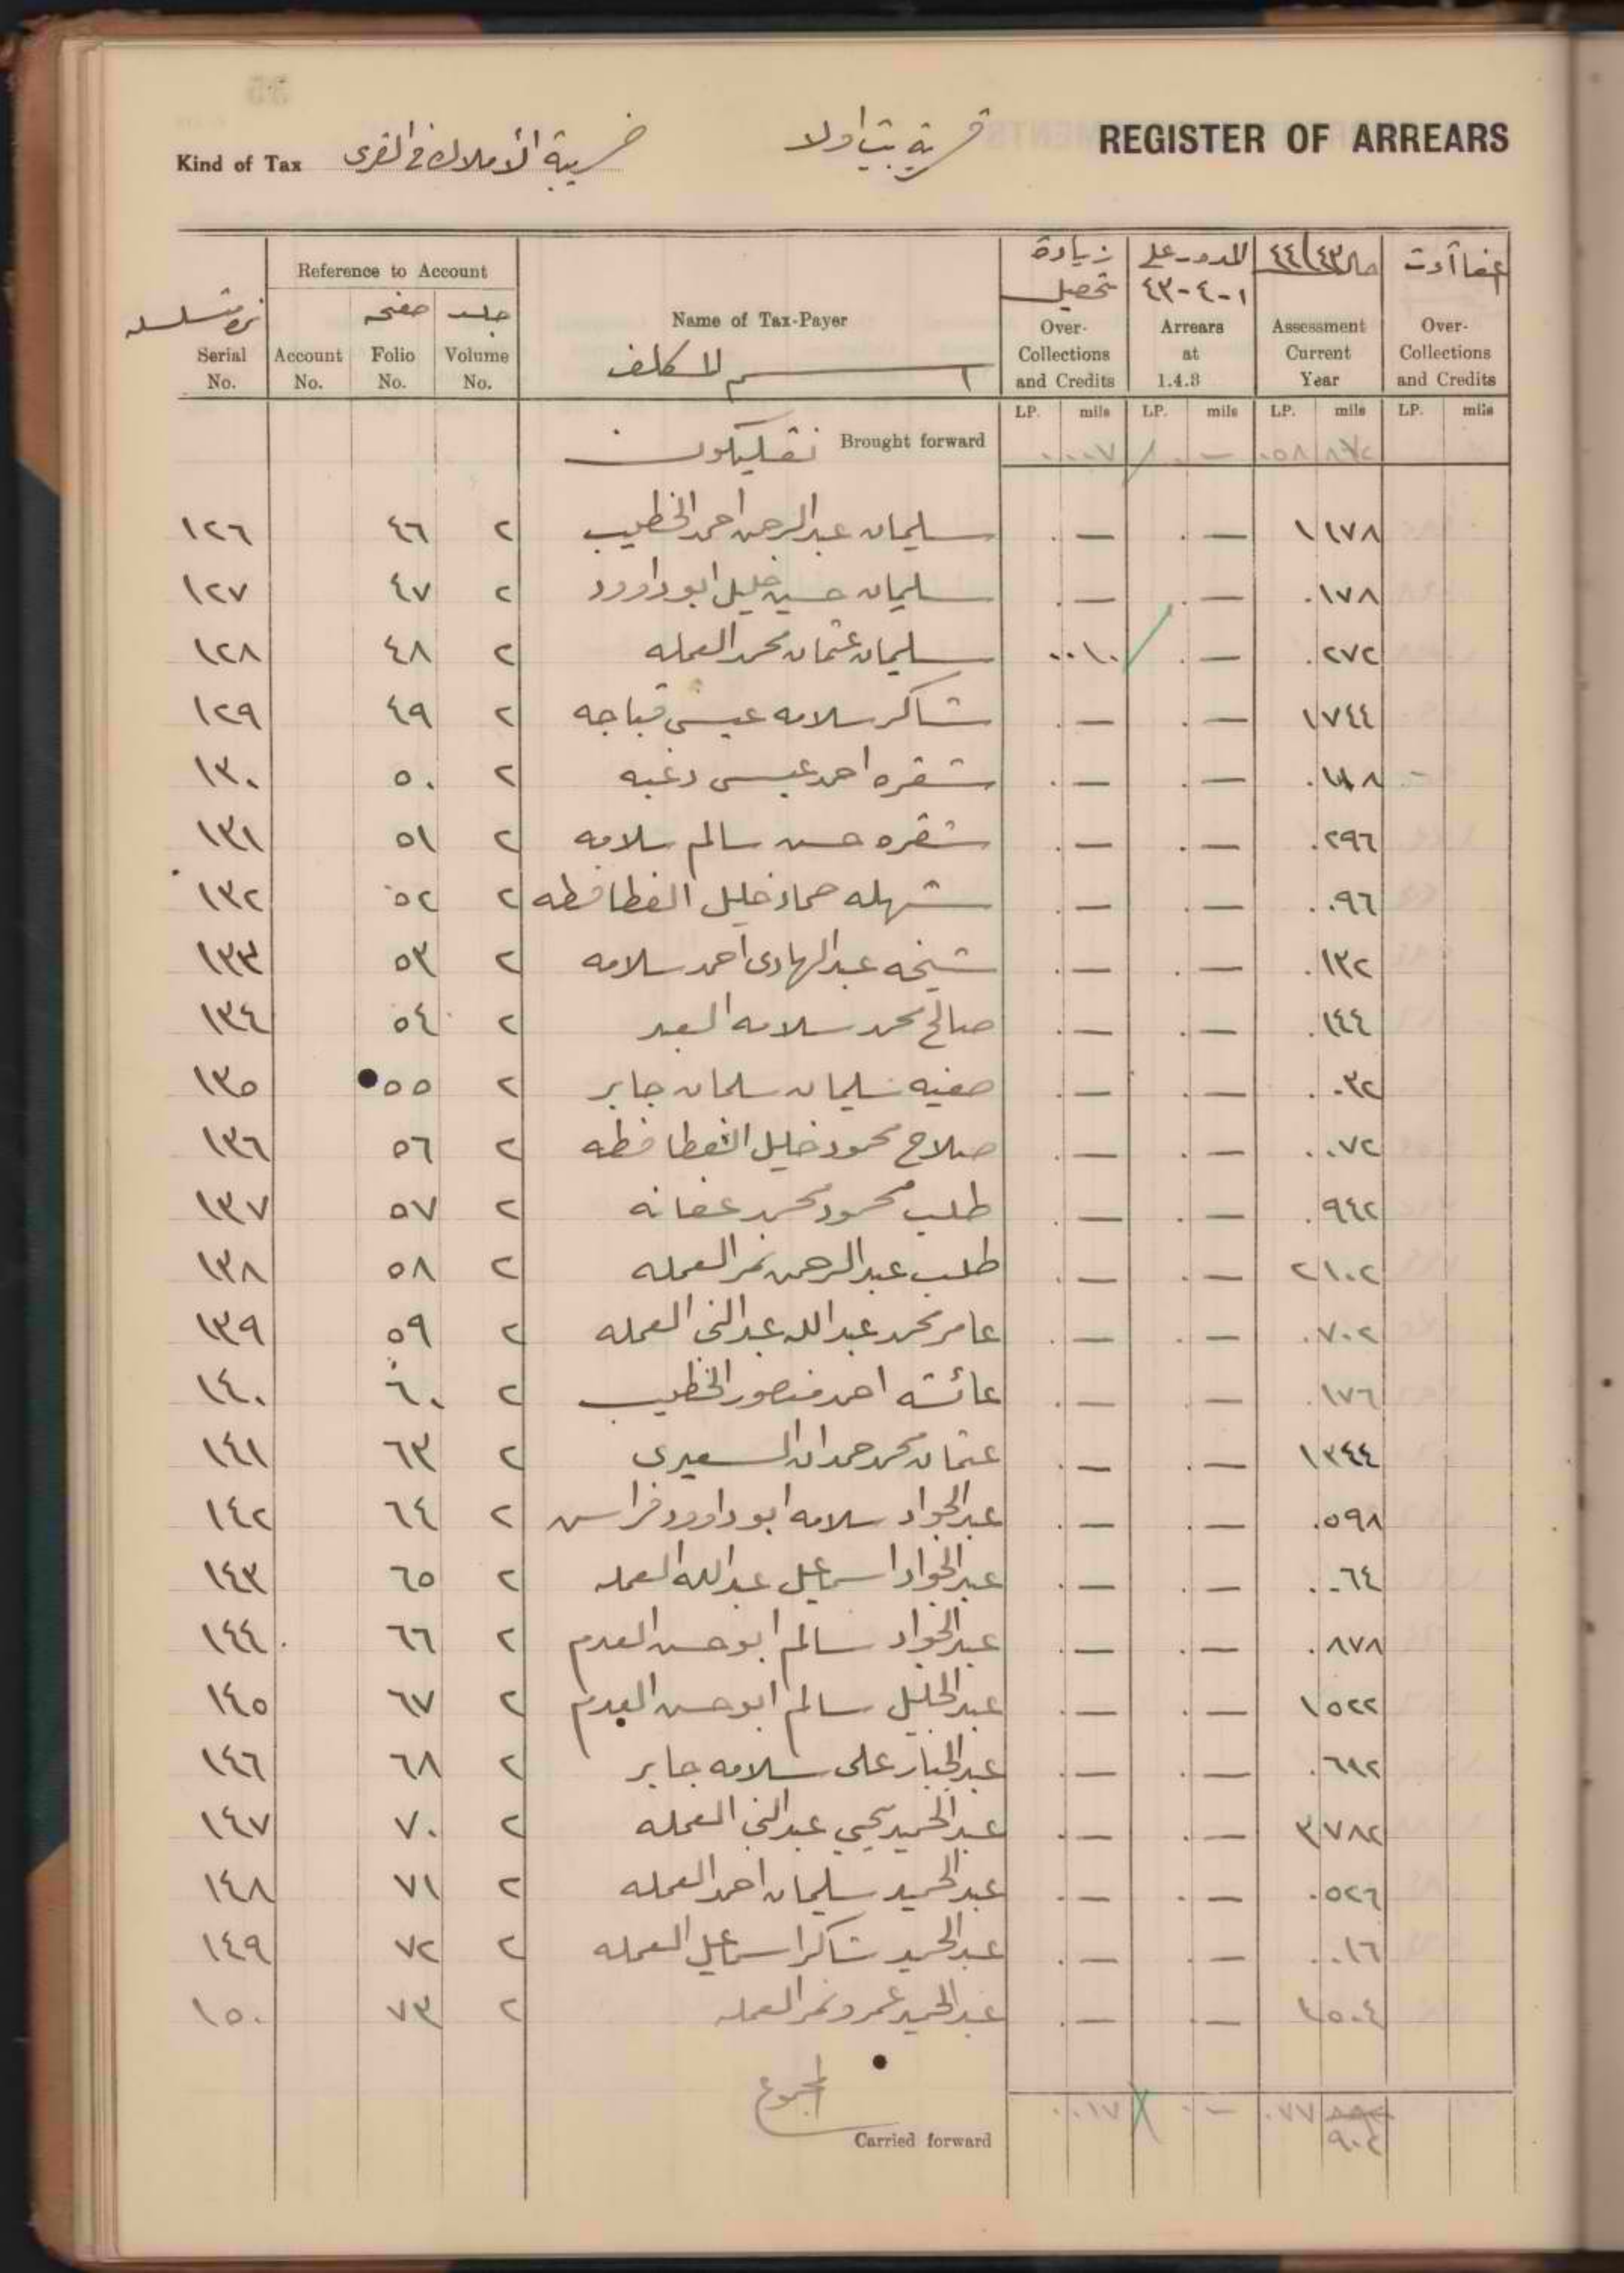 REGISTER OF ARREARS
قرية بيت اولا
Kind of Tax ضريبة الأملاك في القرى
نمرة متسلسله Serial No.
Reference to Account
Account No.
صفحه Folio No.
جلد Volume No.
Name of Tax-Payer
اسم المكلف
زيادة تحصيل Over-Collections and Credits
المدور على ١-٤-٤٣ Arrears at 1.4.8
حال ٤٤/٤٣ Assessment Current Year
اعفاآت Over-Collections and Credits
LP. mils LP. mils LP. mils LP. mils
Brought forward ٠٠٠٧ ٠ — ٠٥٨
١٢٦ ٤٦ ٢ سليمان عبدالرحمن احمد الخطيب ٠ — ٠ — ١ ١٧٨
١٢٧ ٤٧ ٢ سليمان حسين خليل ابو داوود ٠ — ٠ — ٠ ١٧٨
١٢٨ ٤٨ ٢ سليمان عثمان محمد العمله ٠٠١٠ ٠ — ٠ ٢٧٢
١٢٩ ٤٩ ٢ شاكر سلامه عيسى قباجه ٠ — ٠ — ١ ٧٤٤
١٣٠ ٥٠ ٢ شقره احمد عيسى دغبه ٠ — ٠ —
١٣١ ٥١ ٢ شقره حسن سالم سلامه ٠ — ٠ — ٠ ٢٩٦
١٣٢ ٥٢ ٢ شهله حماد خليل القطافطه ٠ — ٠ — ٠ ٠٩٦
١٣٣ ٥٣ ٢ شيخه عبدالهادى احمد سلامه ٠ — ٠ — ٠ ١٣٢
١٣٤ ٥٤ ٢ صالح محمد سلامه العبد ٠ — ٠ — ٠ ١٤٤
١٣٥ ٥٥ ٢ صفيه سليمان سلمان جابر ٠ — ٠ — ٠ ٠٣٢
١٣٦ ٥٦ ٢ صلاح محمود خليل القطافطه ٠ — ٠ — ٠ ٠٧٢
١٣٧ ٥٧ ٢ طلب محمود محمد عفانه ٠ — ٠ — ٠ ٩٤٢
١٣٨ ٥٨ ٢ طلب عبدالرحمن نمر العمله ٠ — ٠ — ٢ ١٠٢
١٣٩ ٥٩ ٢ عامر محمد عبدالله عبدالنبي العمله ٠ — ٠ — ٠ ٧٠٢
١٤٠ ٦٠ ٢ عائشه احمد منصور الخطيب ٠ — ٠ — ٠ ١٧٦
١٤١ ٦٣ ٢ عثمان محمد حمدان السعيدى ٠ — ٠ — ١ ٣٤٤
١٤٢ ٦٤ ٢ عبدالجواد سلامه ابو داوود فراس ٠ — ٠ — ٠ ٥٩٨
١٤٣ ٦٥ ٢ عبدالجواد اسماعيل عبدالله العمله ٠ — ٠ — ٠ ٠٦٤
١٤٤ ٦٦ ٢ عبدالجواد سالم ابو حسن العدم ٠ — ٠ — ٠ ٨٧٨
١٤٥ ٦٧ ٢ عبدالجليل سالم ابو حسن العدم ٠ — ٠ — ١ ٥٢٢
١٤٦ ٦٨ ٢ عبدالجبار على سلامه جابر ٠ — ٠ —
١٤٧ ٧٠ ٢ عبدالحميد يحيي عبدالنبي العمله ٠ — ٠ — ٣ ٧٨٢
١٤٨ ٧١ ٢ عبدالحميد سليمان احمد العمله ٠ — ٠ — ٠ ٥٢٦
١٤٩ ٧٢ ٢ عبدالحميد شاكر اسماعيل العمله ٠ — ٠ — ٠ ٠١٦
١٥٠ ٧٣ ٢ عبدالحميد عمرو نمر العمله ٠ — ٠ — ١ ٥٠٤
المجموع
Carried forward ٠٠١٧ ٠ — ٠٧٧ ٩٠٢